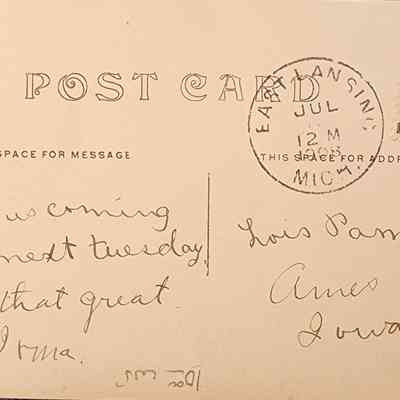 POST CARD
EAST LANSING
JUL
12 M
1908
MICH.
SPACE FOR MESSAGE
THIS SPACE FOR ADDR
us coming
next tuesday.
that great.
Irma.
Lois Pam
Ames
Iowa